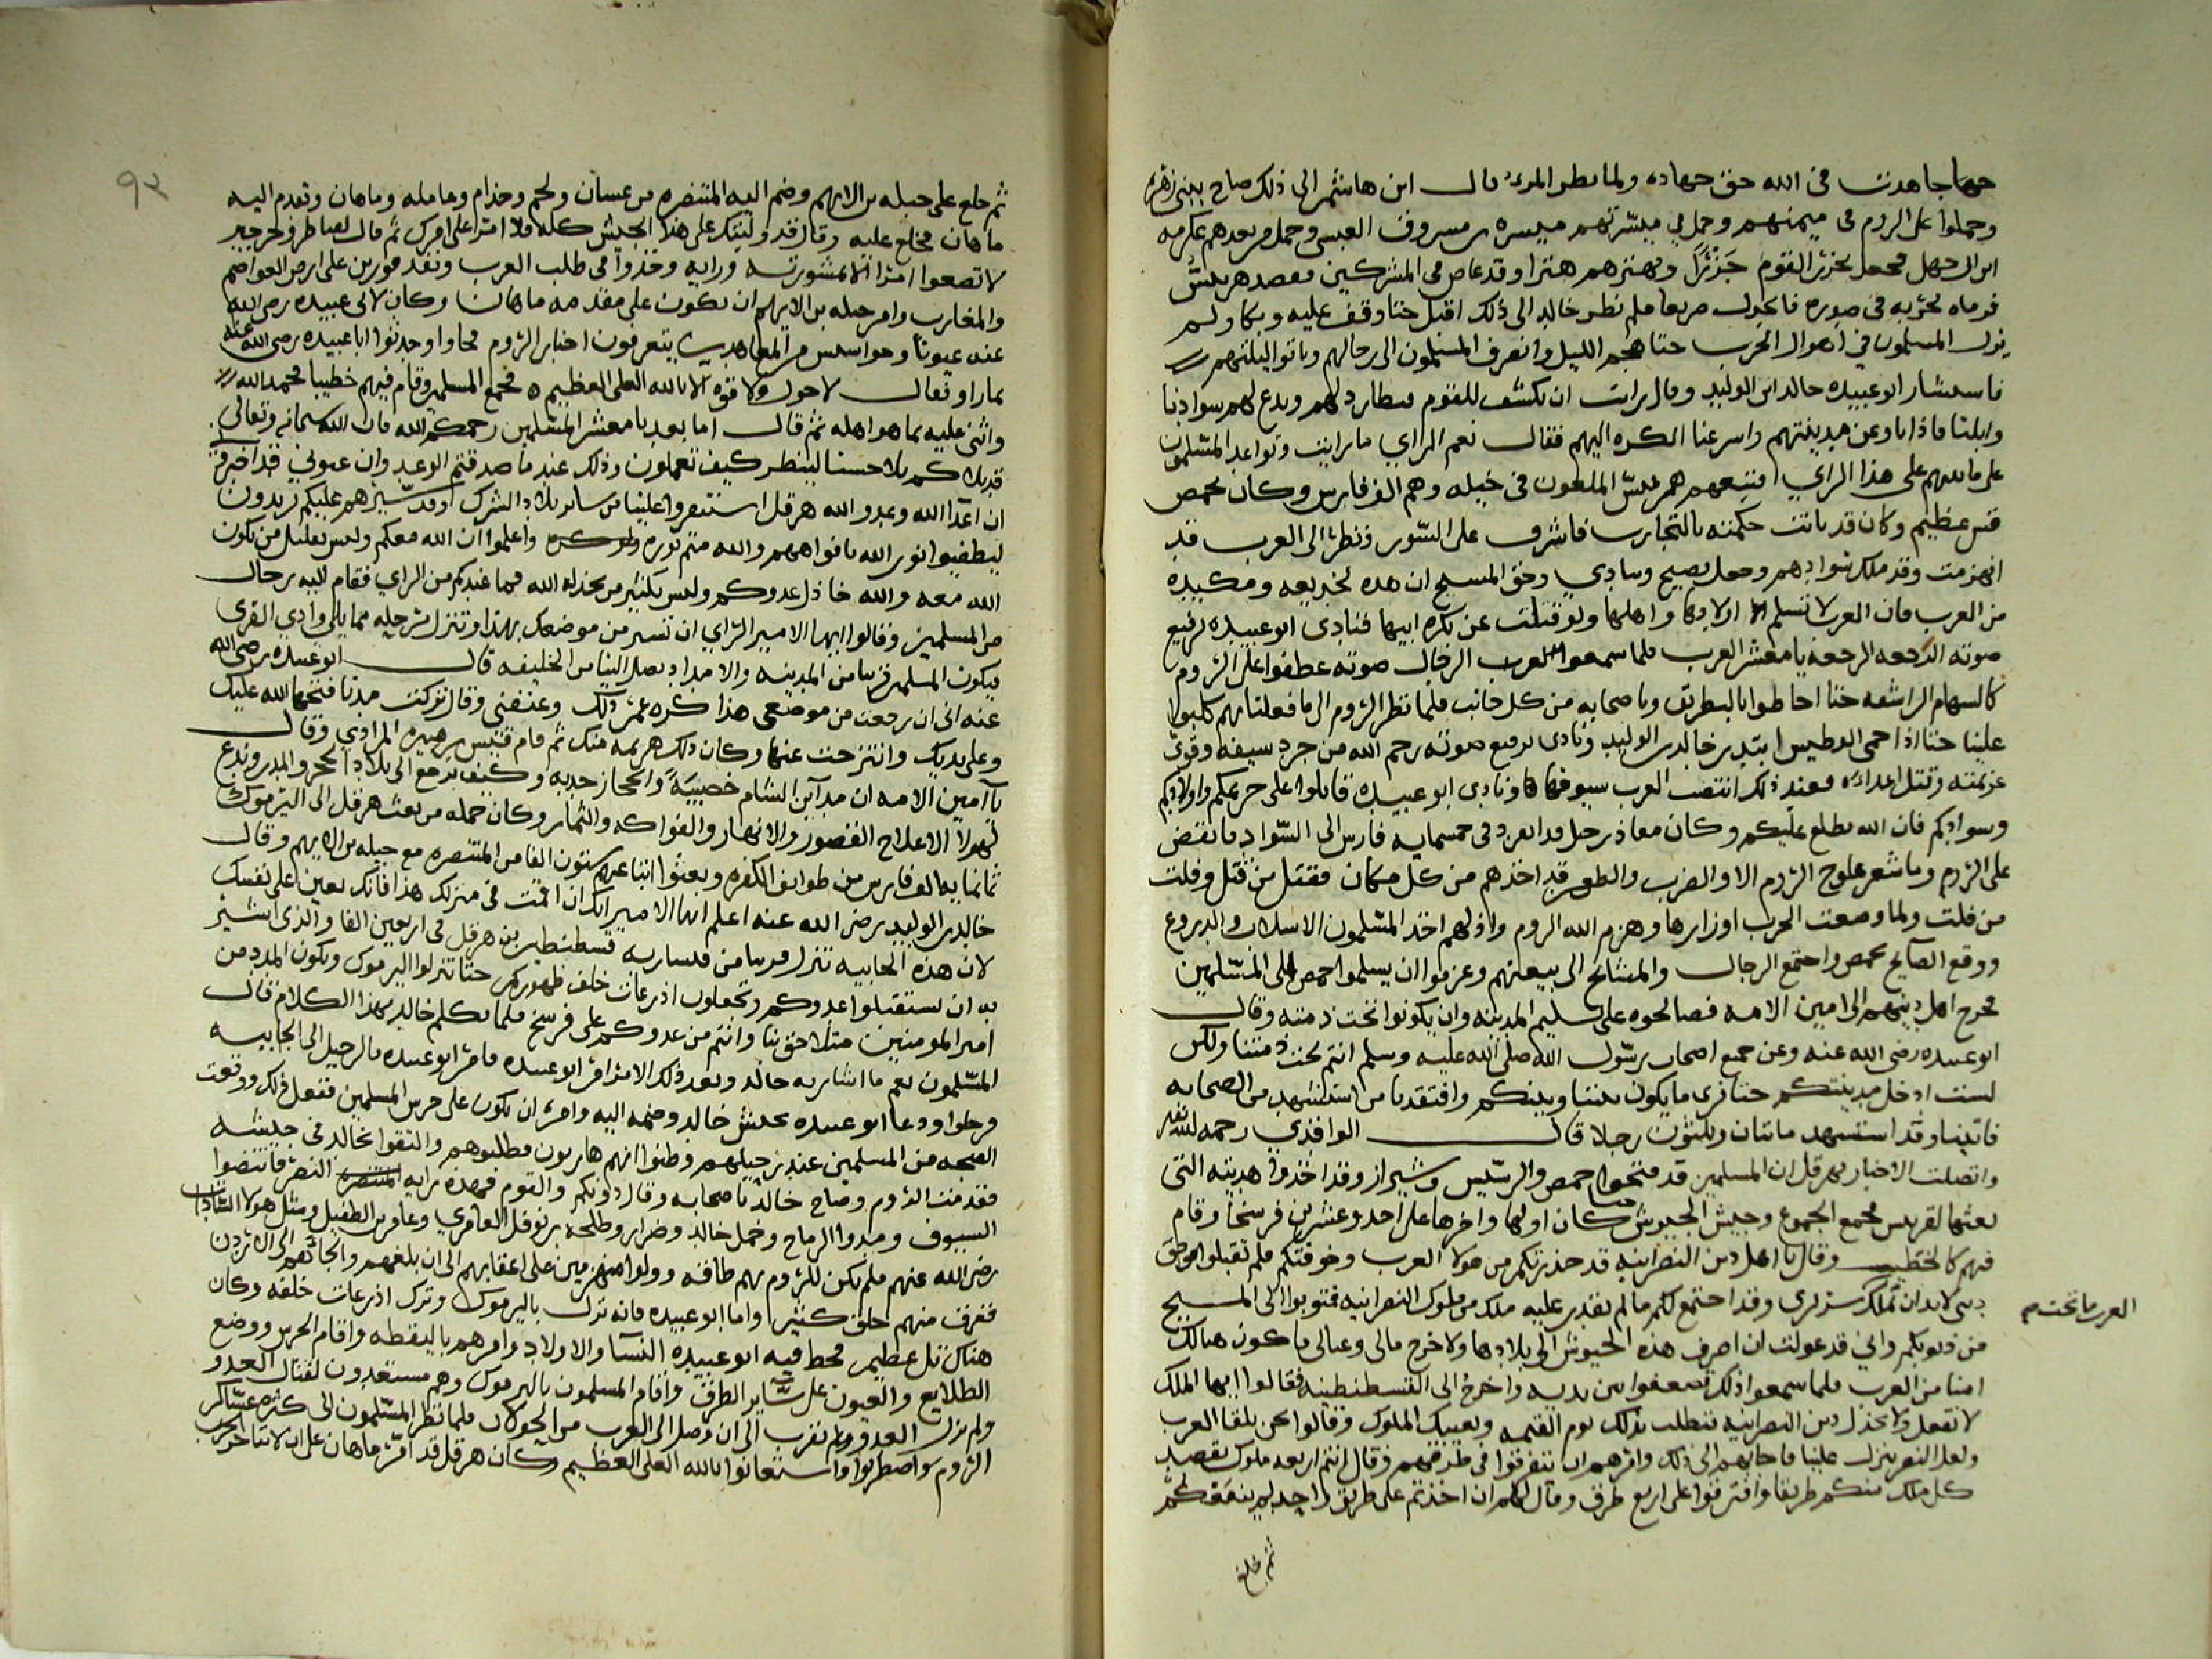 جهاجاهدت فى الله حق جهاده ولما نظر المر قال ابن هاشم الى ذلك صاح ببنى زهره
وحملوا على الروم فى ميمنهم وحمل في ميسرتهم ميسره بن مسروق العبسى وحمل من بعدهم عكرمه
ابن ابى جهل فجعل يجزر القوم جزرا ويهبرهم هبرا وقد غاص فى المشركين فقصد هربيس
فرماه بحربه فى صدره فانجدل صريعا فلم نظر خالد الى ذلك اقبل حتا وقف عليه وبكا ولم
يزل المسلمون في اهوال الحرب حتا هجم الليل وانصرف المسلمون الى رحالهم وباتوا ليلتهم
فاستشار ابو عبيده خالد ابن الوليد وقال رايت ان نكشف للقوم فنطاردهم وندع لهم سوادنا
وابلنا فاذا بادعن مدينتهم واسرعنا الكره اليهم فقال نعم الراي ما رايت وتواعد المسلمون
على هذا الراي فتبعهم هربيس الملعون فى خيله وهم الف فارس وكان بحمص
قس عظيم وكان قد بانت حكمته بالتجارب فاشرف على السور ونظر الى العرب قد
انهزمت وقد ملك سوادهم وجعل يصيح وينادي وحق المسيح ان هده لخديعه ومكيده
من العرب فان العرب لا تسلم اولادها واهلها ولو قتلت عن بكره ابيها فنادى ابو عبيده برفيع
صوته الرجعه الرجعه يا معشر العرب فلما سمعوا العرب الرجال صوته عطفوا على الروم
كالسهام الراشقه حتا احاطوا بالبطريق وباصحابه من كل جانب فلما نظر الروم الى ما فعلنا بهم كلبوا
علينا حتا اذا حمى الوطيس ابتدر خالد بن الوليد ونادى برفيع صوته رحم الله من جرد سيفه وقوى
عزيمته وقتل اعداه فعند ذلك انتضت العرب سيوفها ونادى ابو عبيده قاتلوا على حريمكم واولادكم
وسوادكم فان الله مطلع عليكم وكان معاذ بن جبل قد انفرد فى خمسمايه فارس الى السواد فانقض
على الروم وما شعر علوج الروم الا والضرب والطعن قد اخذهم من كل مكان فقتل من قتل وفلت
من فلت ولما وضعت الحرب اوزارها وهزم الله الروم واذلهم اخذ المسلمون الاسلاب والدروع
ووقع الصايح بحمص واجتمع الرجال والمشايخ الى بيعتهم وعزموا ان يسلموا حمص الى المسلمين
فخرج اهل دينهم الى امين الامه فصالحوه على تسليم المدينه وان يكونوا تحت ذمته وقال
ابو عبيده رضى الله عنه وعن جميع اصحاب رسول الله صلى الله عليه وسلم انتم تحت ذمتنا ولكن
لست ادخل مدينتكم حتا نرى ما يكون بيننا وبينكم وافتقدنا من استشهد من الصحابه
فاتينا وقد استشهد ماتتان وثلثون رجلا قال الواقدي رحمه الله
واتصلت الاخبار بهرقل ان المسلمين قد فتحوا حمص والرستن وشيزر وقد اخذوا هديته التى
بعثها لهربيس فجمع الجموع وجيش الجيوش كان اولها واخرها على احد وعشرين فرسخا وقام
فيهم كالخطيب وقال يا اهل دين النصرانيه قد حذرتكم من هولا العرب وخوفتكم فلم تقبلوا فوحق
دينى لابد ان تملك سريري وقد اجتمع لكم ما لم يقدر عليه ملك من ملوك النصرانيه فتوبوا الى المسيح
من ذنوبكم واني قد عولت ان اصرف هذه الجيوش الى بلادها ولاخرج مالى وعيالى فاكون هنالك
امنا من العرب فلما سمعوا ذلك تصعقوا بين يديه واخرج الى القسطنطينيه فقالوا ايها الملك
لا تفعل ولا تخذل دين النصرانيه فتطلب بذلك يوم القيمه ويعيبك الملوك وقالوا نحن نلقا العرب
ولعل النصر ينزل علينا فاجابهم الى ذلك وامرهم ان يتفرقوا فى طرقهم وقال انتم اربعه ملوك يقصد
كل ملك منكم طريقا وافترقوا على اربع طرق وقال لهم ان اخذتم على طريق واحد لم ينفعكم
ثم خلع
العرب ما تحتم
٩٣
ثم خلع على جبله بن الايهم وضم اليه المتنصره من غسان ولخم وجذام وعامله وماهان وتقدم اليه
ماهان فخلع عليه وقال قد وليتك على هذا الجيش كله فلا امرا على امرك ثم قال لقناطر وجرجير
لا تصنعوا امرا الا بمشورته ورايه وخذوا فى طلب العرب ونفذ قورين على ارض العواصم
والمغارب وامر جبله بن الايهم ان يكون على مقدمه ماهان وكان لابى عبيده رضى الله
عنه عيونا وجواسيس من المعاهدين يتعرفون اخبار الروم فجاوا وحدثوا ابا عبيده رضى الله عنه
بما راوا فقال لا حول ولا قوه الا بالله العلى العظيم ه فجمع المسلمين وقام فيهم خطيبا فحمد الله
واثنى عليه بما هو اهله ثم قال اما بعد يا معشر المسلمين رحمكم الله فان الله سبحانه وتعالى
قد بلاكم بلا حسنا لينظر كيف تعملون وذلك عند ما صدقتم الوعد وان عيوني قد اخبروني
ان اعدا الله وعدو الله هرقل استنفروا علينا من ساير بلاد الشرك وقد سيرهم عليكم يريدون
ليطفيوا نور الله بافواههم والله متم نوره ولو كره واعلموا ان الله معكم وليس بقليل من يكون
الله معه والله خاذل عدوكم وليس بكثير من يخذله الله فما عندكم من الراي فقام اليه رجال
من المسلمين وقالوا ايها الامير الراي ان تسير من موضعك هذا وتنزل مما يلى وادي القرى
فيكون المسلمين قريبا من المدينه والامداد يصل الينا من الخليفه قال ابو عبيده رضى الله
عنه انى ان رجعت من موضعى هذا كره عمر ذلك وعنفنى وقال تركت مدنا فتحها الله عليك
وعلى يديك وانتزحت عنها وكان ذلك هزيمه منك ثم قام قيس بن هبيره المرادى وقال
يا امين الامه ان مداين الشام خصيبه والحجاز جدبه وكيف نرجع الى بلاد الحجر والمدر وندع
لهولا الاعلاج القصور والانهار والفواكه والثمار وكان جمله من بعث هرقل الى اليرموك
ثمانمايه الف فارس من طوايف الكفره وبعثوا ستون الفا من المتنصره مع جبله بن الايهم وقال
خالد بن الوليد رضى الله عنه اعلم ايها الامير انك ان اقمت فى منزلك هذا فانك تعين على نفسك
لان هذه الجابيه تنزل قريبا من قيساريه قسطنطين بن هرقل فى اربعين الفا والذى اشير
به ان تستقبلوا عدوكم وتجعلون اذرعات خلف ظهوركم حتا تنزلوا اليرموك ويكون المدد من
امير المومنين متلاحق بنا وانتم من عدوكم على فرسخ فلما تكلم خالد بهذا الكلام قال
المسلمون نعم ما اشار به خالد وبعد ذلك الامر امر ابو عبيده فامر ابو عبيده بالرحيل الى الجابيه
فرحلوا ودعا ابو عبيده بجيش خالد وضمه اليه وامره ان يكون على حرس المسلمين ففعل ذلك ووقعت
الضجه من المسلمين عند رحيلهم وظنوا انهم هاربون فطلبوهم والتقوا بخالد فى جيشه
فقدمت الروم وصاح خالد باصحابه وقال دونكم والقوم فهذه رايه النصر فانتضوا
السيوف ومدوا الرماح وحمل خالد وضرار وطلحه بن نوفل العامري وعامر بن الطفيل ومثل هولا السادات
رضى الله عنهم فلم يكن للروم بهم طاقه وولوا منهزمين على اعقابهم الى ان بلغهم والجاهم الى الاردن
فغرق منهم خلق كثيرا واما ابو عبيده فانه نزل باليرموك وترك اذرعات خلفه وكان
هناك تل عظيم فحط فيه ابو عبيده النسا والاولاد وامرهم باليقظه واقام الحرس ووضع
الطلايع والعيون على ساير الطرق واقام المسلمون باليرموك وهم مستعدون لقتال العدو
ولم نزل العدو تقرب الى ان وصل الى العرب من الجولان فلما نظر المسلمون الى كثره عساكر
الروم واضطربوا واستعانوا بالله العلى العظيم وكان هرقل قد امر ماهان على ان لا تناجز الحرب